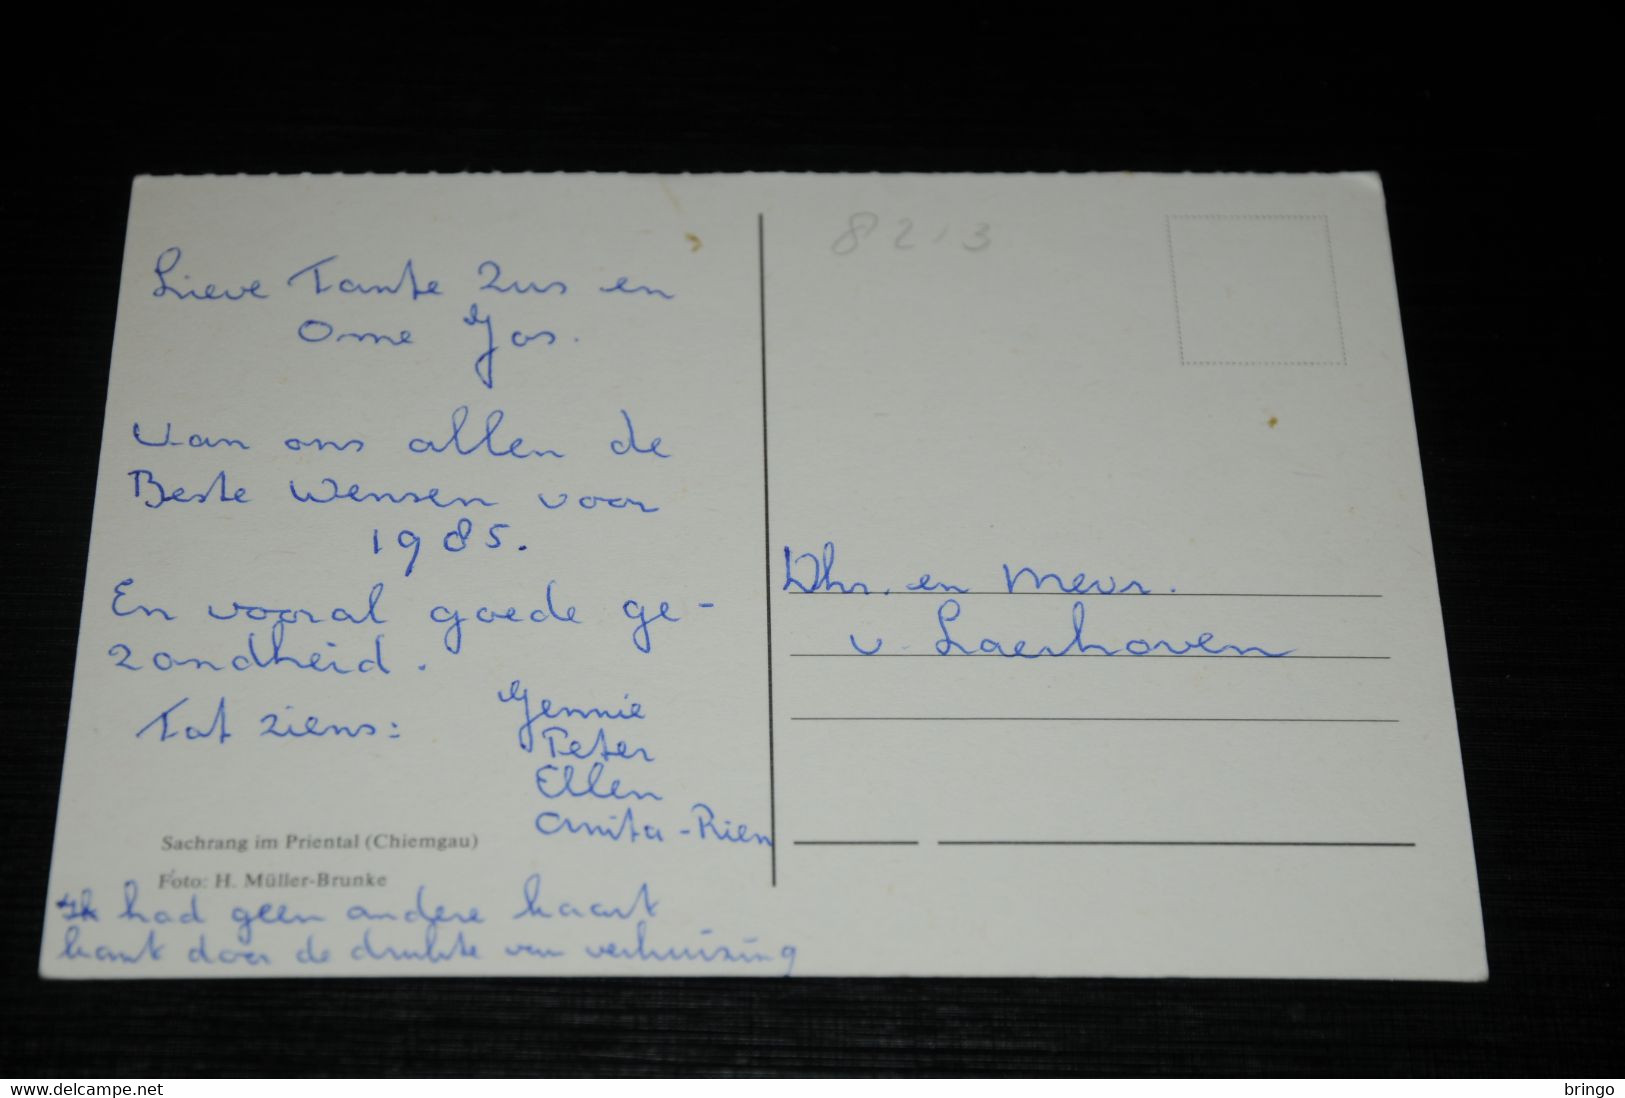 Lieve Tante Zus en
Ome Jos.
Van ons allen de
Beste Wensen voor
1985.
En vooral goede ge-
zondheid.
Tot ziens:
Jennie
Peter
Ellen
Anita-Rien
Sachrang im Priental (Chiemgau)
Foto: H. Müller-Brunke
Ik had geen andere kaart
komt door de drukte van verhuizing
8213
Dhr. en Mevr.
v. Laerhoven
www.delcampe.net
bringo